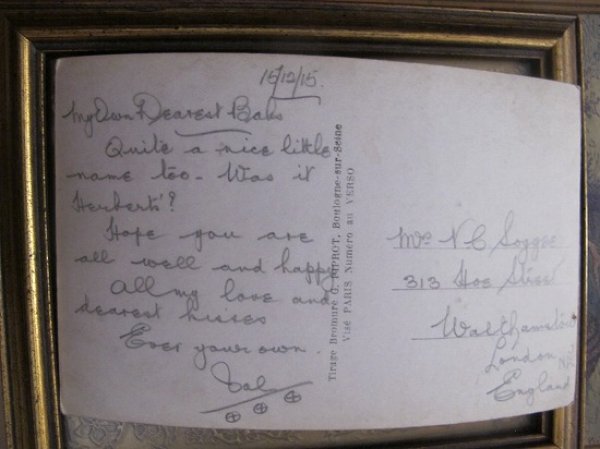 15/12/15.
My Own Dearest Babs
Quite a nice little
name too. Was it
Herberts'?
Hope you are
all well and happy
All my love and
dearest kisses
Ever your own.
Tirage Bromure G. PIPROT, Boulogne-sur-Seine
Visé PARIS Numéro au VERSO
N C
313 Hoe Street
Walthamstow
London
England